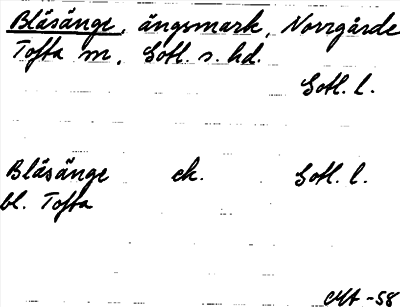 Blåsänge, ängsmark, Norrgårde
Tofta sn, Gotl. s. hd.
Gotl. l.
Blåsänge ek. Gotl. l.
bl. Tofta
-58